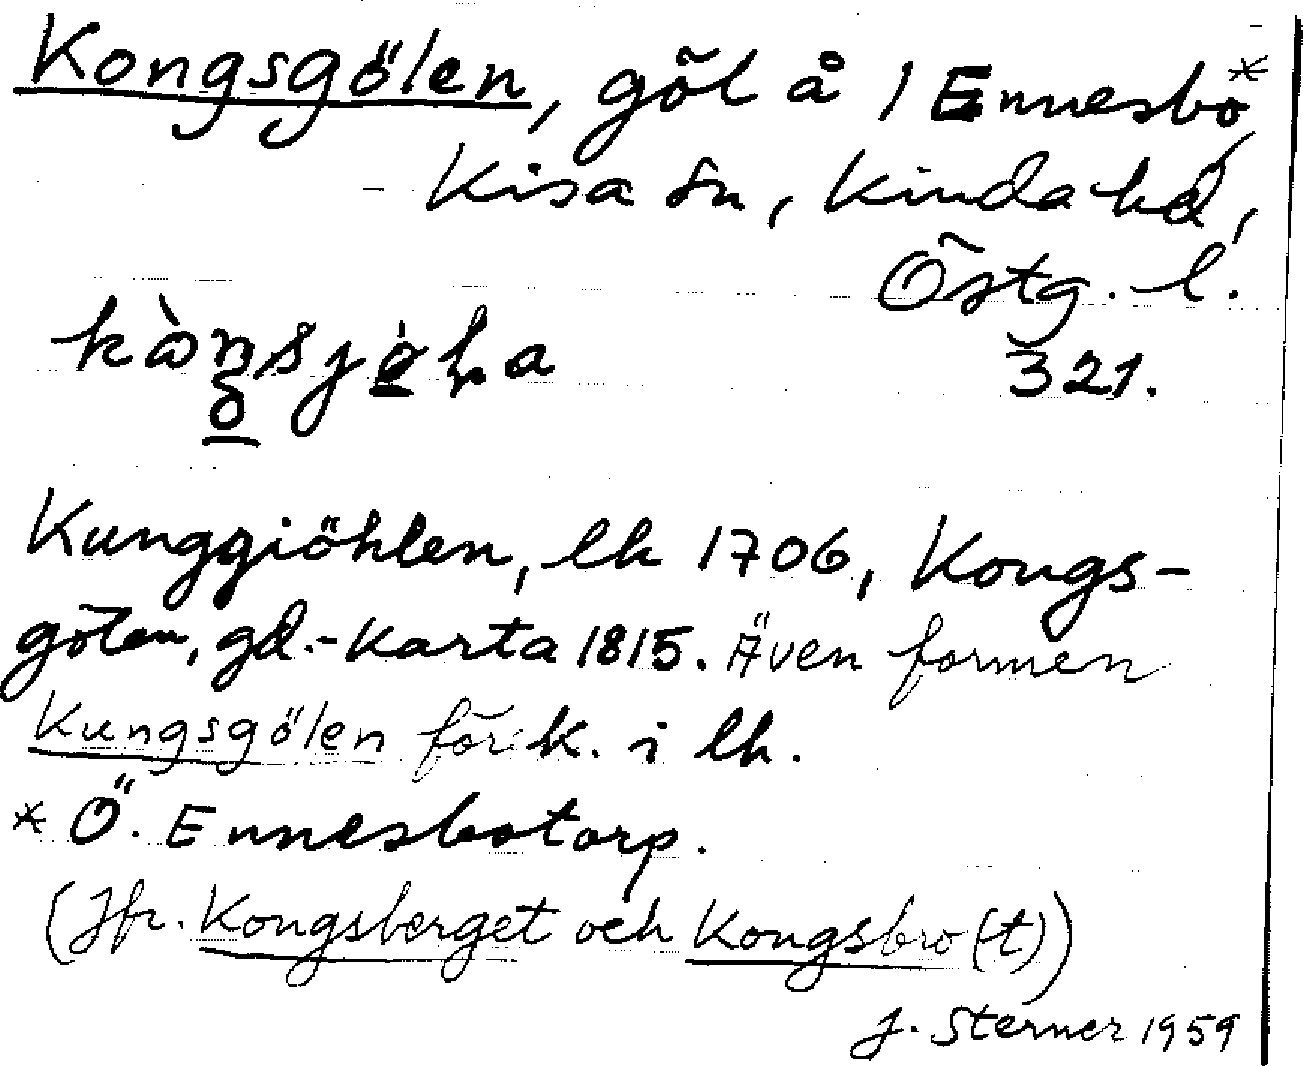 Kongsgölen, göl å 1 Ennesbo*,
Kisa sn, Kinda hd,
Östg. l.
321.
Kunggiöhlen, lh 1706, Kongs-
gölen, gd.-karta 1815. Även formen
Kungsgölen förek. i lh.
* Ö. Ennesbotorp.
(Jfr. Kongsberget och Kongsbro(t))
J. Sterner 1959